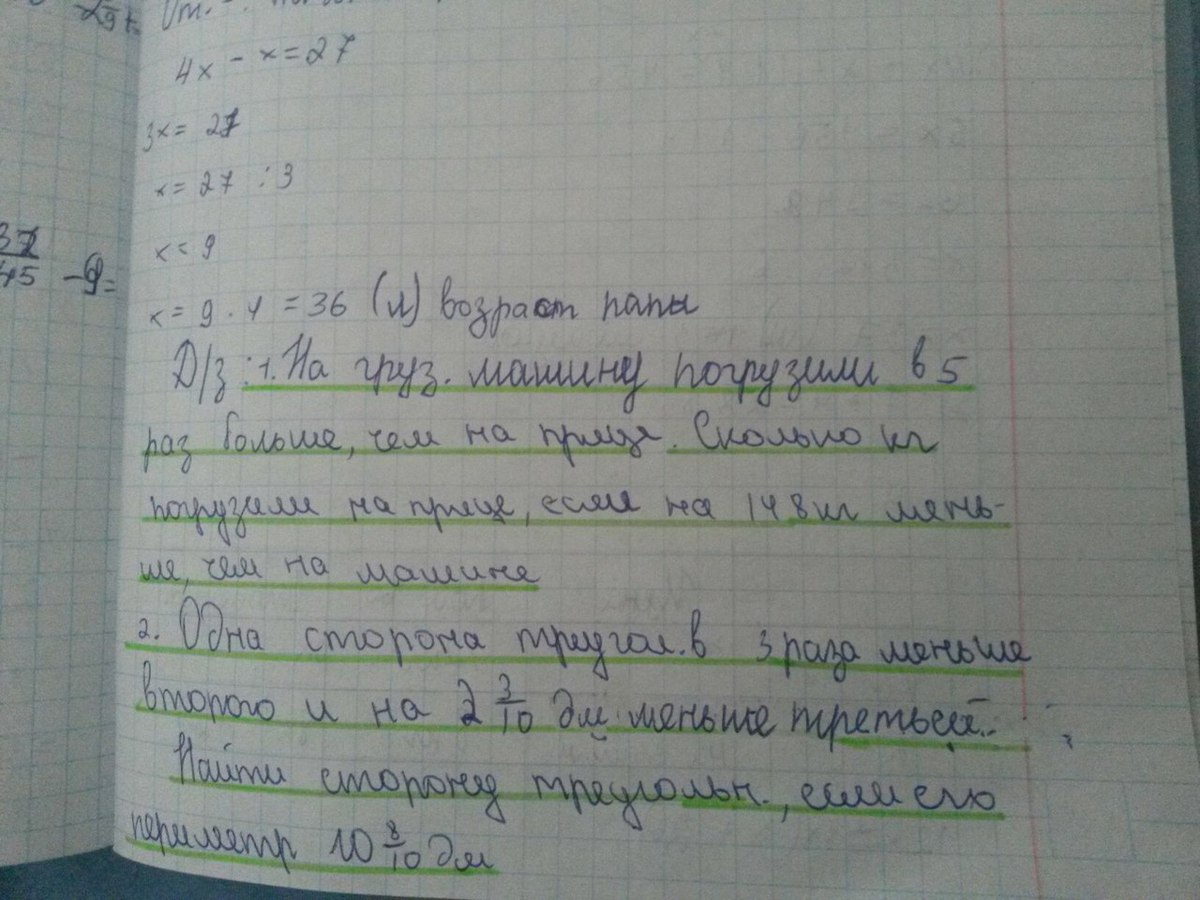 4x - x = 27
3x = 27
x = 27 : 3
x = 9
37
45 - 9 =
x = 9 · 4 = 36 (л) возраст папы
Д/з: 1. На груз. машину погрузили в 5
раз больше, чем на прице. Сколько кг
погрузили на прице, если на 148 кг мень-
ше, чем на машине
2. Одна сторона треугол. в 3 раза меньше
второго и на 2 3/10 дм меньше третьей.
Найти сторону треугольн., если его
периметр 10 8/10 дм